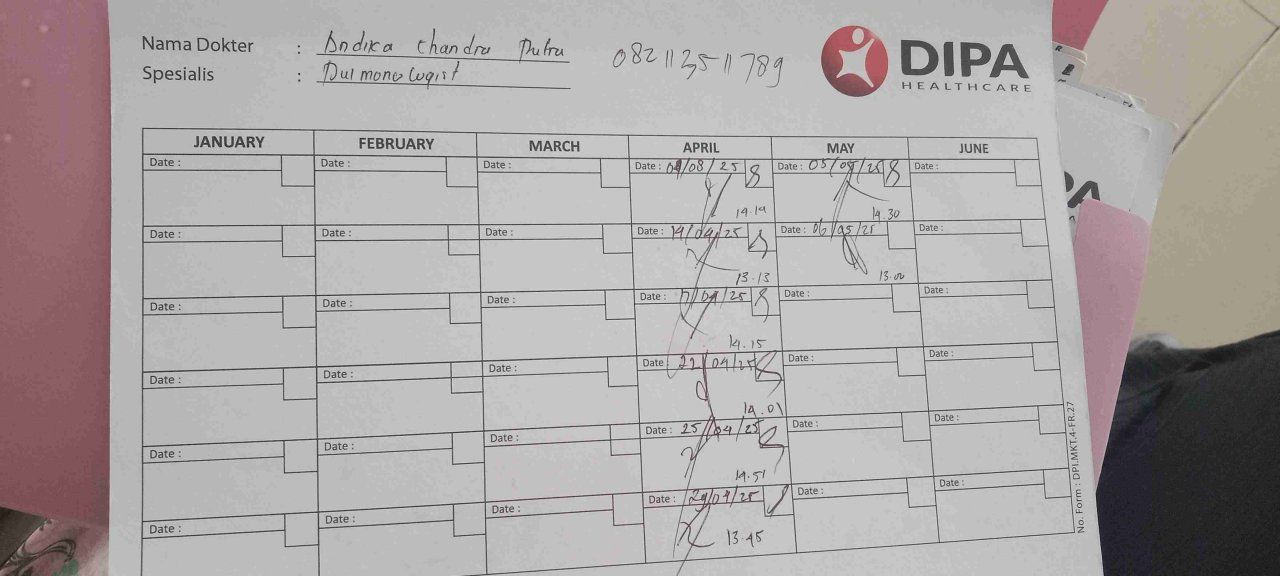 Nama Dokter : Andika Chandra Putra 082113511789
Spesialis : Pulmonologist
DIPA
HEALTHCARE
JANUARY FEBRUARY MARCH APRIL MAY JUNE
Date : Date : Date : Date : 09/08/25 8 Date : 05/05/25 8 Date :
14.19 14.30
Date : Date : Date : Date : 14/04/25 8 Date : 06/05/25 Date :
13.13 13.00
Date : Date : Date : Date : 17/04/25 8 Date : Date :
14.15
Date : Date : Date : Date : 22/04/25 8 Date : Date :
14.01
Date : Date : Date : Date : 25/04/25 8 Date : Date :
14.51
Date : Date : Date : Date : 29/04/25 Date : Date :
13.45
No. Form : DPI.MKT.4-FR.27